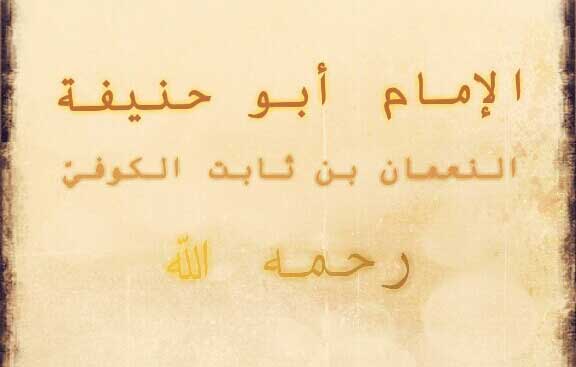 الإمام أبو حنيفة
النعمان بن ثابت الكوفيّ
رحمه الله